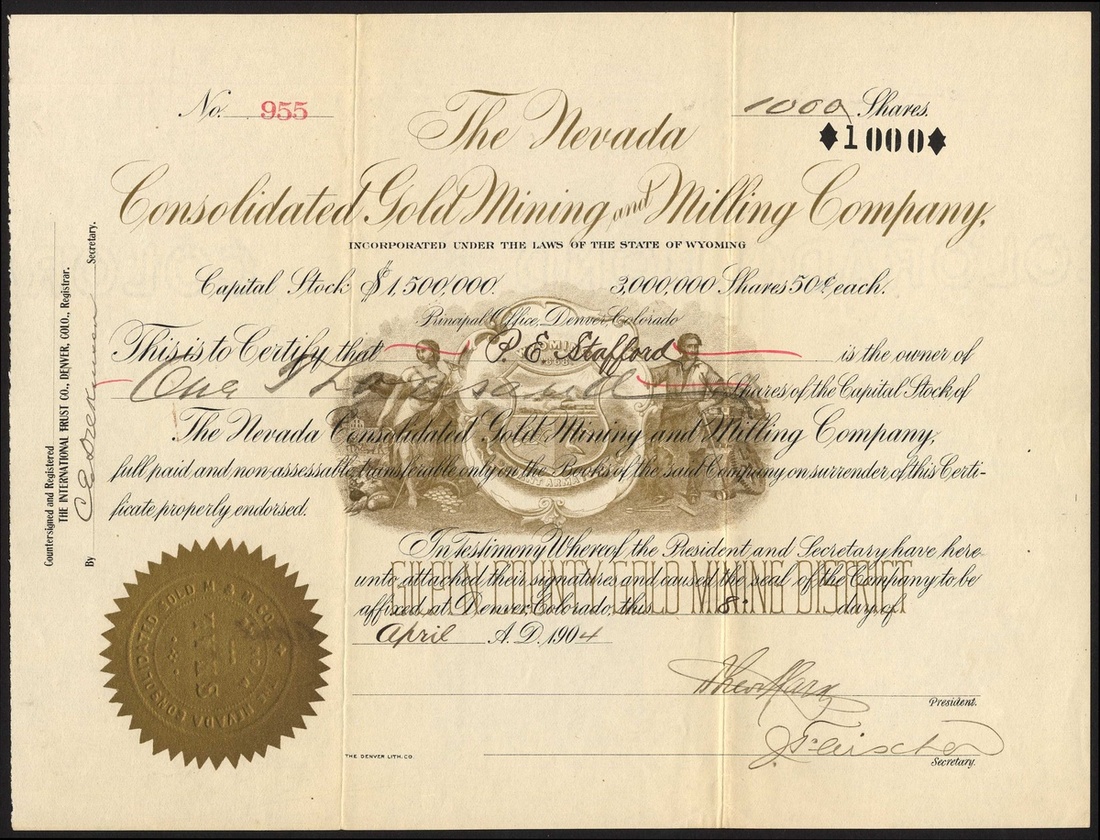 No. 955
1000 Shares.
♦1000♦
The Nevada
Consolidated Gold Mining and Milling Company,
INCORPORATED UNDER THE LAWS OF THE STATE OF WYOMING
Capital Stock $1,500,000. 3,000,000 Shares 50¢ each.
Principal Office, Denver, Colorado
This is to Certify that P. E. Stafford is the owner of
One Thousand Shares of the Capital Stock of
The Nevada Consolidated Gold Mining and Milling Company,
full paid and non-assessable, transferable only on the Books of the said Company on surrender of this Certi-
ficate properly endorsed.
In Testimony Whereof, the President and Secretary have here-
unto attached their signatures and caused the seal of the Company to be
affixed at Denver, Colorado, this 8 day of
April A.D. 1904
GILPIN COUNTY GOLD MINING DISTRICT
President.
Secretary.
THE DENVER LITH. CO.
Countersigned and Registered
THE INTERNATIONAL TRUST CO., DENVER, COLO., Registrar.
By Secretary.
NEVADA CONSOLIDATED GOLD M & M CO.
SEAL